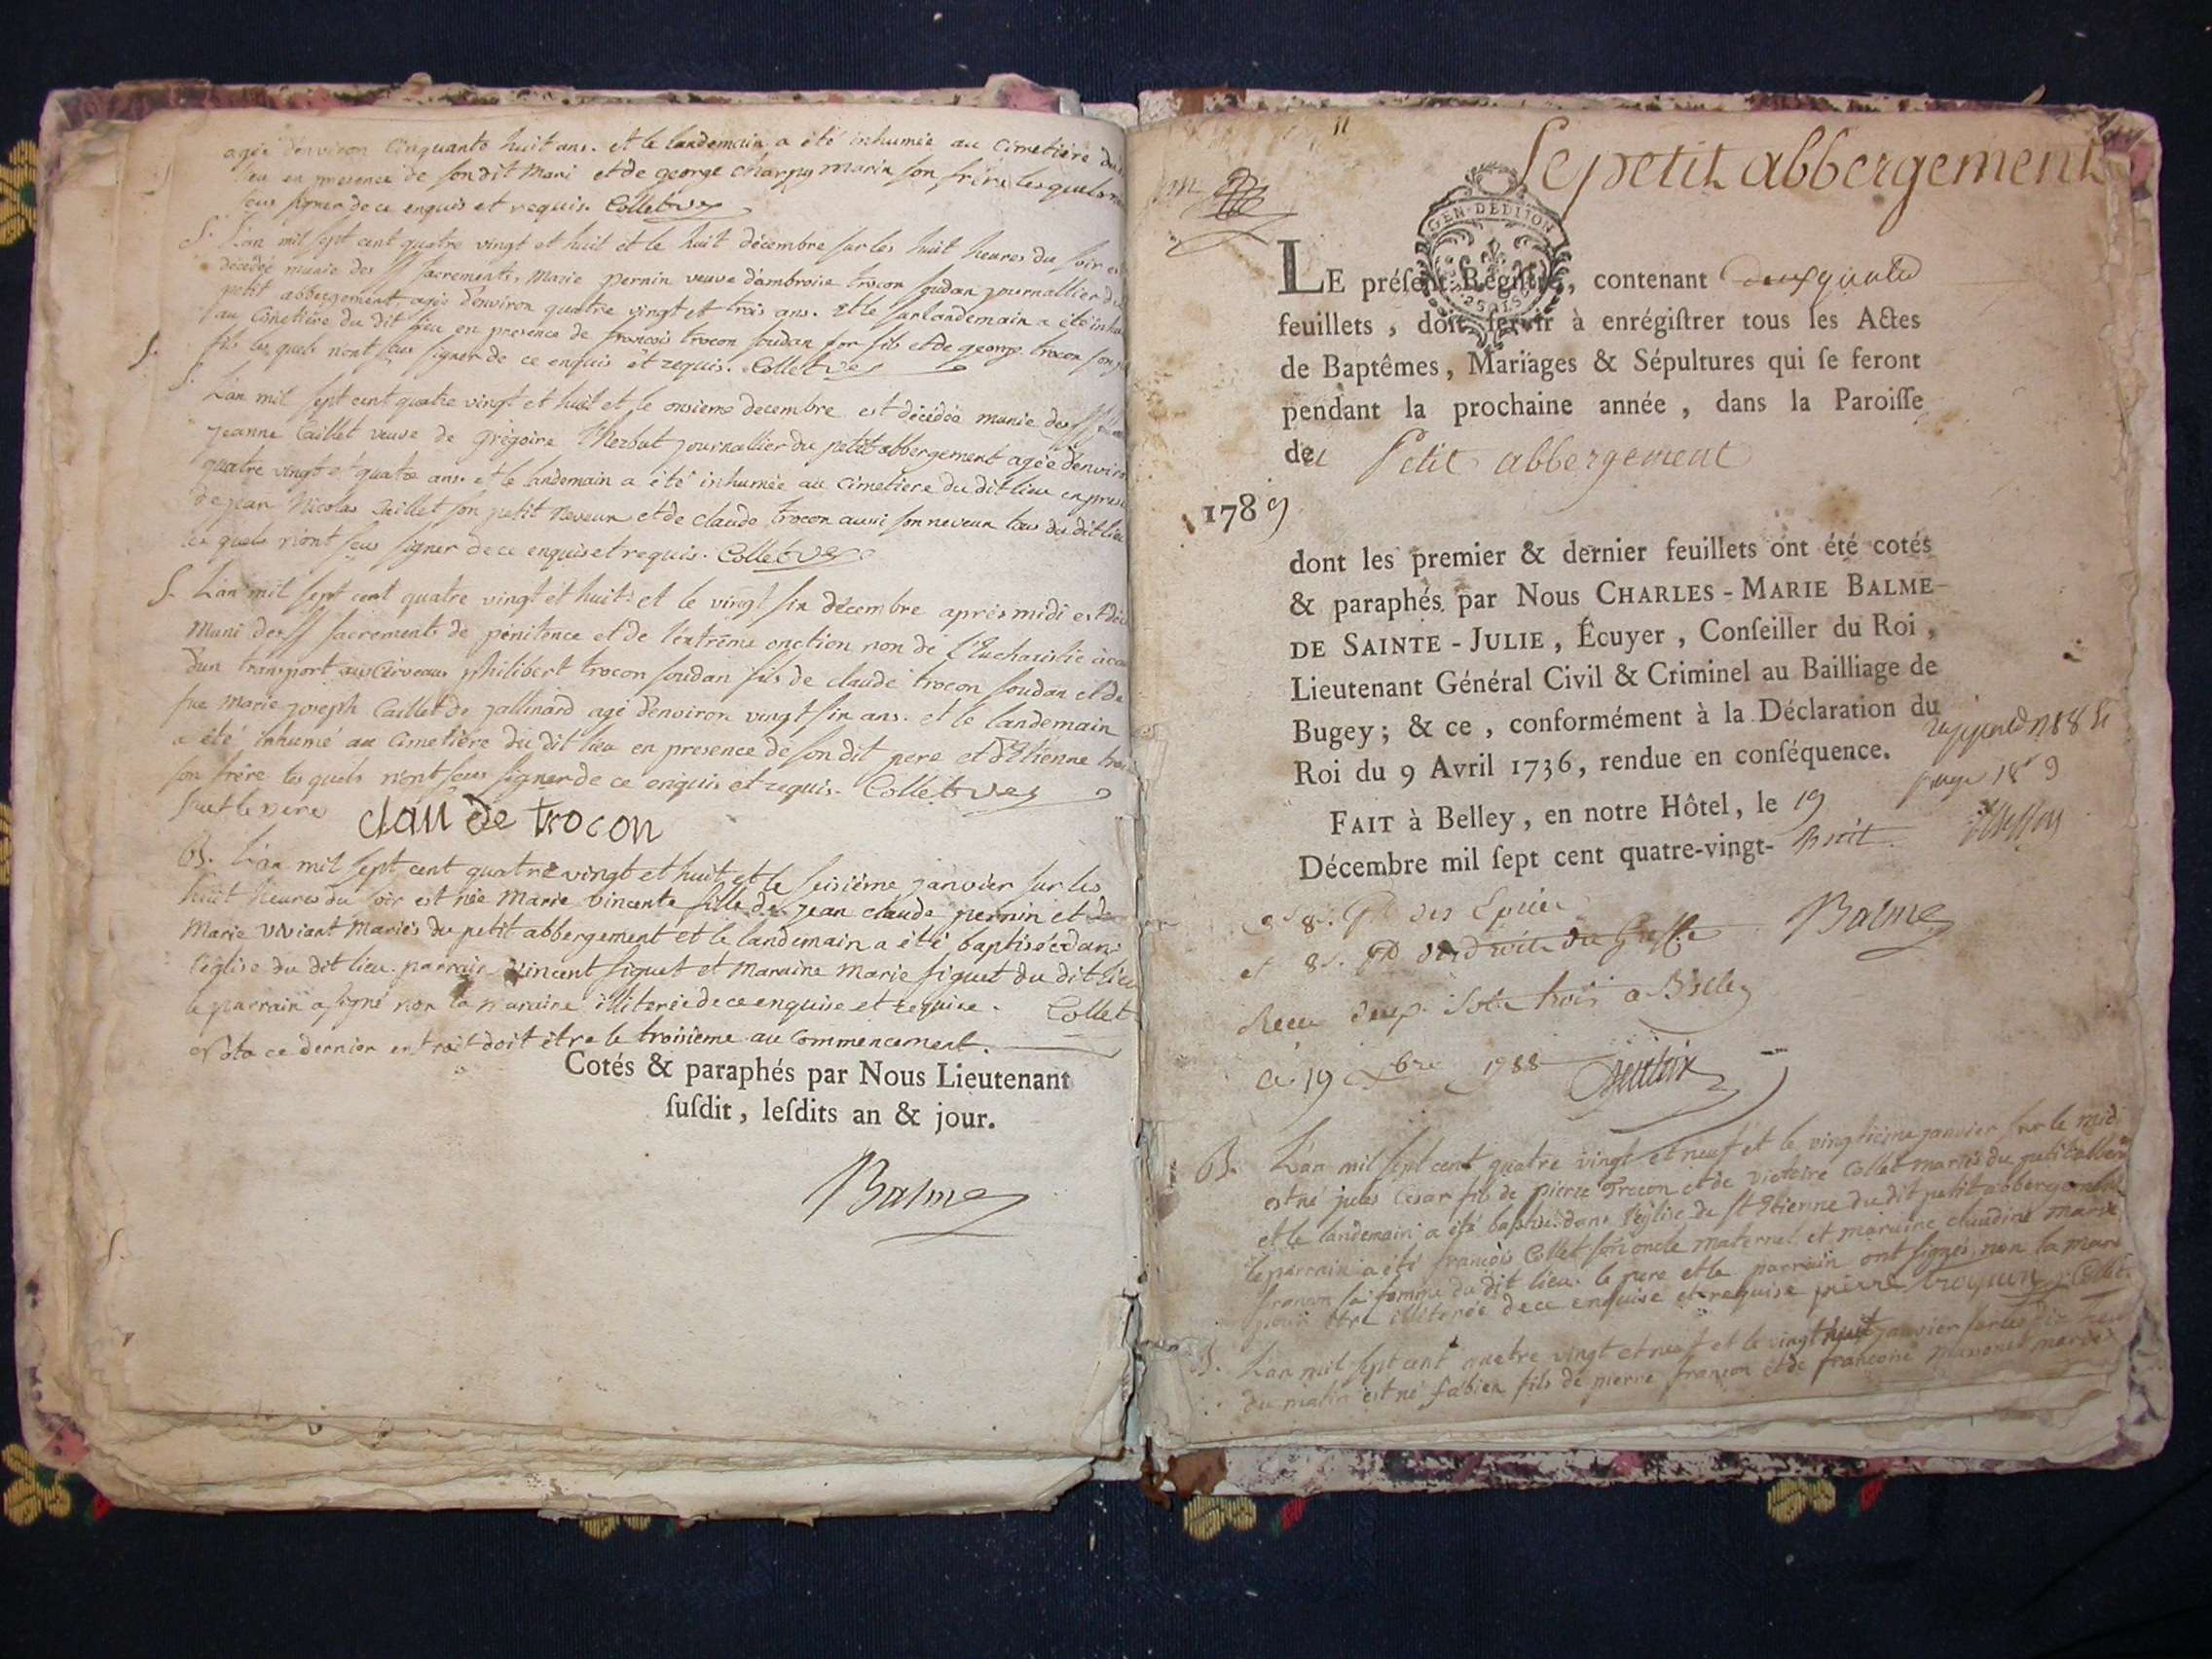 agée denviron Cinquante huit ans. et le landemain a été inhumée au Cimetière
lieu en presence de son dit Mari et de george Charpy marin son frère lesquels
seus signer de ce enquis et requis. Collet
S. L'an mil sept cent quatre vingt et huit et le huit décembre sur les huit heures du soir
décédée munie des SS sacrements, Marie pernin veuve d'ambroise trocon soudan journallier
petit abbergement agée denviron quatre vingt et trois ans. et le surlandemain a été
au Cimetière du dit lieu en presence de francois trocon soudan son fils et de george trocon son
fils les quels nont seus signer de ce enquis et requis. Collet
S. L'an mil sept cent quatre vingt et huit et le onsieme decembre est décédée munie des SS
jeanne Caillet veuve de Grégoire journallier du petit abbergement agée denviron
quatre vingt et quatre ans. et le landemain a été inhumée au Cimetiere du dit lieu en
de jean Nicolas Caillet son petit Neveux et de claude trocon aussi son neveux tous du dit lieu
les quels n'ont seus signer de ce enquis et requis. Collet
S. L'an mil sept cent quatre vingt et huit et le vingt six décembre après midi est
Muni des SS sacrements de pénitence et de l'extrême onction non de l'Eucharistie
d'un transport au Cerveaux philibert trocon soudan fils de claude trocon soudan et de
fue Marie joseph Caillet de jallinard agé denviron vingt six ans. et le landemain
a été inhumé au Cimetière du dit lieu en presence de son dit pere et d'Etienne
son frère les quels n'ont seus signer de ce enquis et requis. Collet
sauf le père claude trocon
B. L'an mil sept cent quatre vingt et huit et le seisième janvier sur les
huit heures du soir est née Marie vincente fille de jean claude pernin et de
Marie viviant Mariés du petit abbergement et le landemain a été baptisée dans
l'église du dit lieu. parrain vincent siguet et Maraine Marie siguet du dit lieu
le parrain a signé non la maraine illiterée de ce enquise et requise. Collet
Nota ce dernier extrait doit être le troisième au commencement.
Cotés & paraphés par Nous Lieutenant
ſuſdit, leſdits an & jour.
Balme
Le petit abbergement
GEN. DEDIJON
LE préſent Regiſtre, contenant
feuillets, doit ſervir à enrégiſtrer tous les Actes
de Baptêmes, Mariages & Sépultures qui ſe feront
pendant la prochaine année, dans la Paroiſſe
du Petit abbergement
1789
dont les premier & dernier feuillets ont été cotés
& paraphés par Nous CHARLES-MARIE BALME
DE SAINTE-JULIE, Écuyer, Conſeiller du Roi,
Lieutenant Général Civil & Criminel au Bailliage de
Bugey; & ce, conformément à la Déclaration du
Roi du 9 Avril 1736, rendue en conſéquence.
FAIT à Belley, en notre Hôtel, le 19
Décembre mil ſept cent quatre-vingt- huit
Balme
Receu deux sols trois a Belley
Ce 19 Xbre 1788
B. L'an mil sept cent quatre vingt et neuf et le vingtième janvier sur le midi
est né jules César fils de pierre Trocon et de victoire Collet mariés du petit
et le landemain a été baptisé dans l'église de St Etienne du dit petit abbergement
le parrain a été francois Collet son oncle maternel et maraine claudine marie
francon sa femme du dit lieu. le pere et le parrain ont signés, non la
pour être illiterée de ce enquise et requise pierre
B. L'an mil sept cent quatre vingt et neuf et le vingt huit janvier sur les dix
du matin est né fabien fils de pierre francon et de francoise mariés